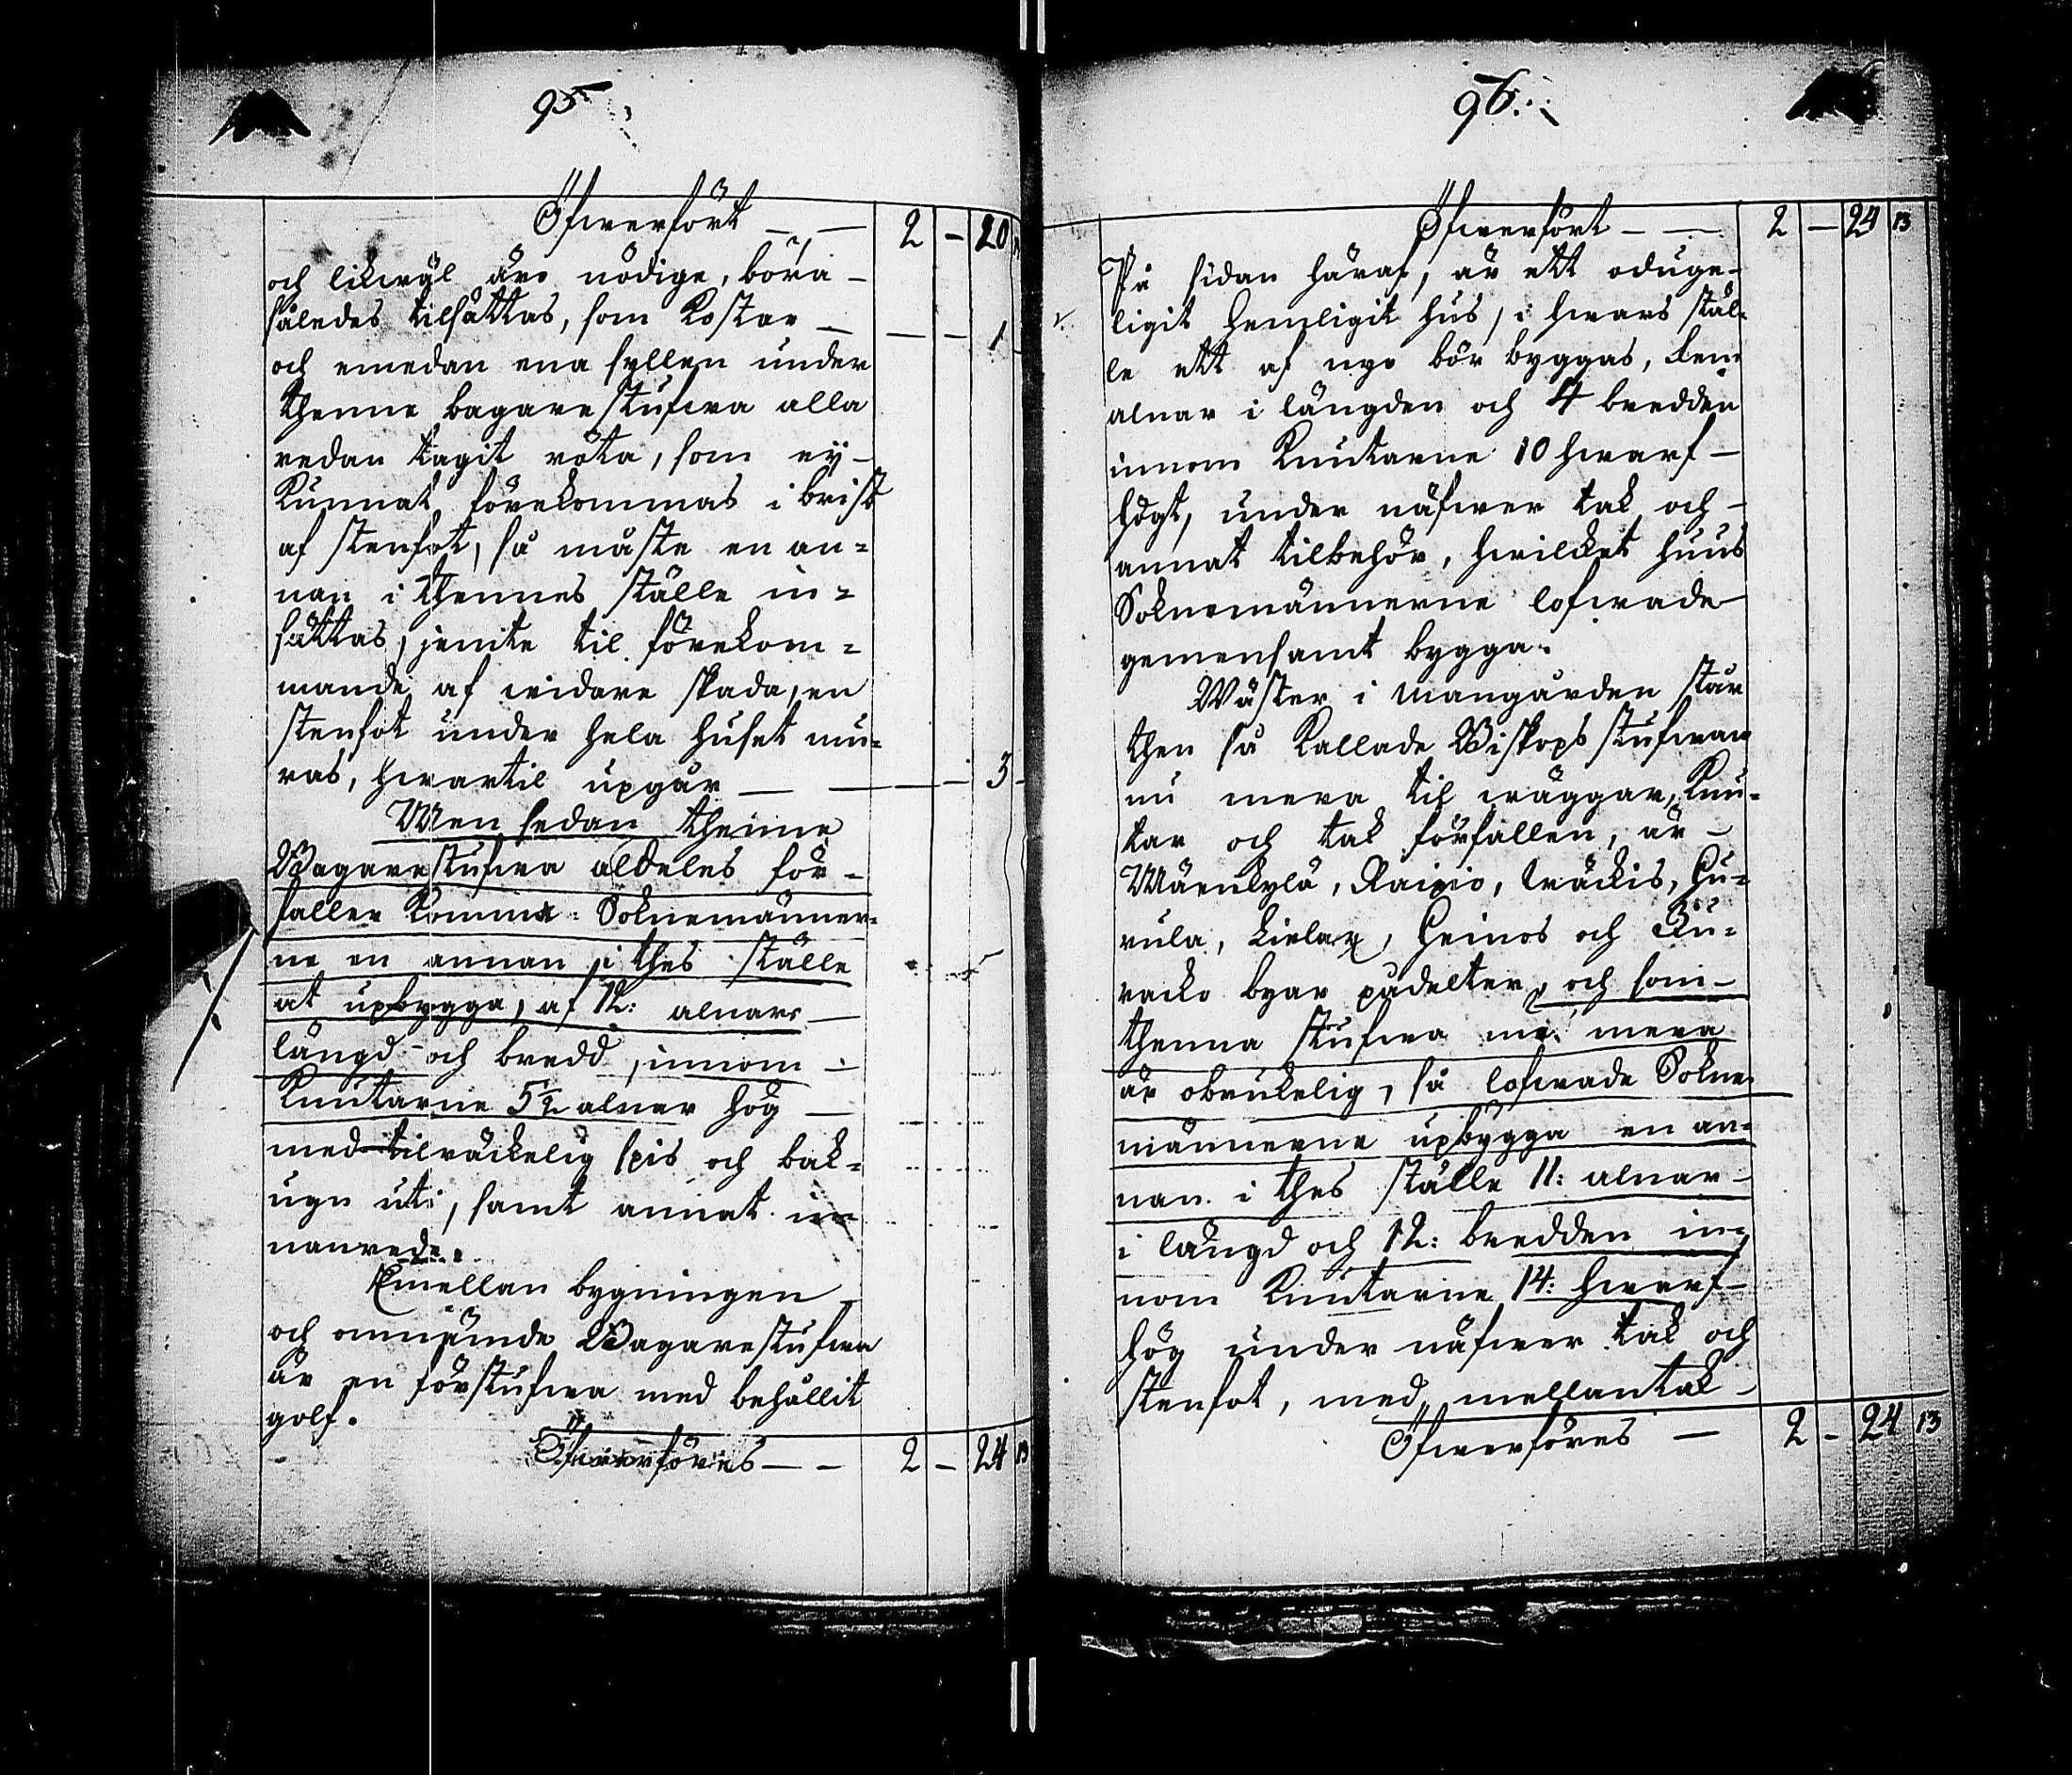 95
Öfwerfört — — 2 – 20
och likwäl äro nödige, böra –
således tilsättas, som kostar — — – 1
och emedan ena syllen under
thenne bagarestufwa alla
redan tagit röta, som ey –
kunnat förekommas i brist
af stenfot, så måste en an=
nan i thennes ställe in=
sättas, jemte til förekom=
mande af widare skada, en
stenfot under hela huset mu=
ras, hwartil upgår — — – 3
Men sedan thenne
Bagarestufwa aldeles för-
faller komma Soknemänner=
ne en annan i thes ställe
at upbygga, af 12: alnars
längd och bredd, innom
knutarne 5½ alner hög —
med tilräckelig spis och bak=
ugn uti, samt annat in
nanrede.
Emellan bygningen
och omnämde Bagarestufwa
är en förstufwa med behållit
golf.
Öfwerföres — – 2 – 24 13
96.
Öfwerfört – — 2 — 24 13
På sidan häraf, är ett oduge-
ligit hemligit hus, i hwars stäl=
le ett af nyo bör byggas, fem
alnar i längden och 4 bredden
innom knutarne 10 hwarf —
högt, under näfwer tak och –
annat tilbehör, hwilcket huus
Soknemännerne lofwade
gemensamt bygga.
Wäster i mangården står
then så kallade Biskops stufwan
nu mera til wäggar, knu=
tar och tak förfallen, är –
Mäenkylä, Raipio, Träckis, Hu=
rula, Lielax, Heinos och Ku=
racko byar pådelter, och som –
thenna stufwa nu mera
är obrukelig, så lofwade Sokne
männerne upbygga en an=
nan i thes ställe 11: alnar –
i längd och 12: bredden in=
nom knutarne 14: hwarf –
hög under näfwer tak och
stenfot, med mellantak –
Öfwerföres — 2 – 24 13